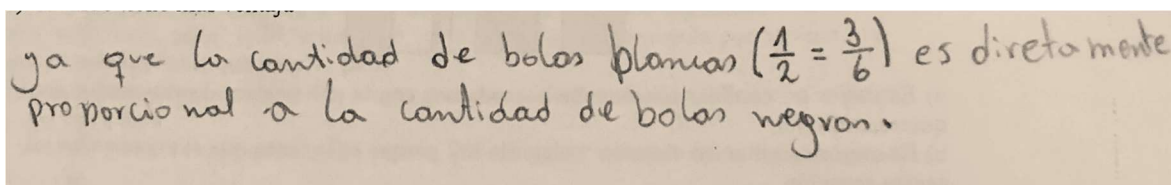 ya que la cantidad de bolas blancas (1/2 = 3/6) es diretamente
proporcional a la cantidad de bolas negras.